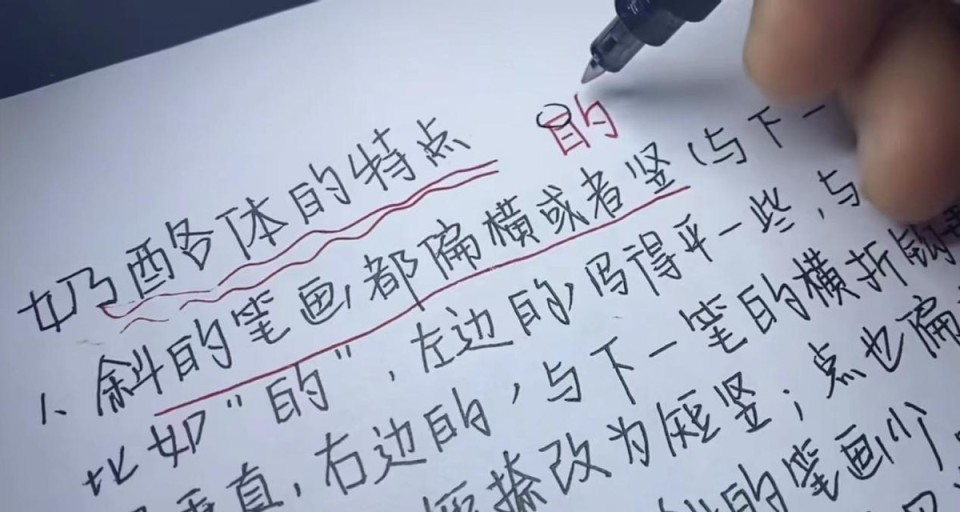 奶酪体的特点 的
1、斜的笔画,都偏横或者竖(与下一
比如"的",左边的丿写得平一些,与
垂直,右边的丿与下一笔的横折钩
捺改为短竖;点也偏
的笔画少